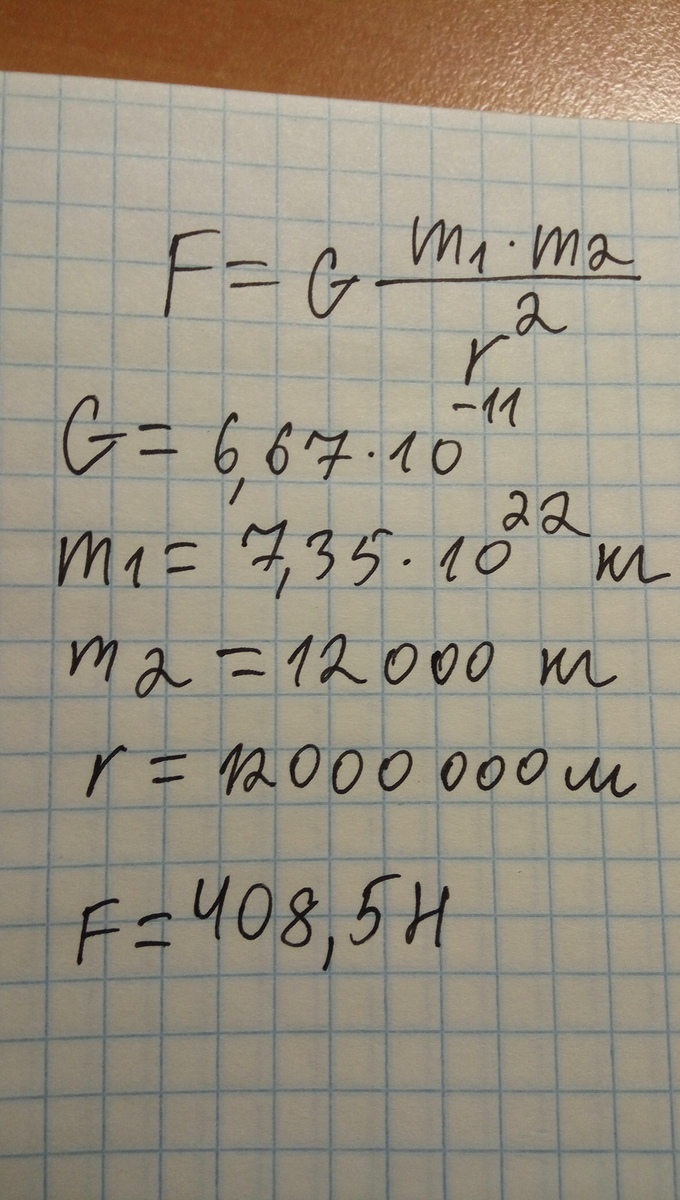 F = G m1 · m2 / r²
G = 6,67 · 10⁻¹¹
m1 = 7,35 · 10²² кг
m2 = 12 000 кг
r = 12000 000 м
F = 408,5 Н